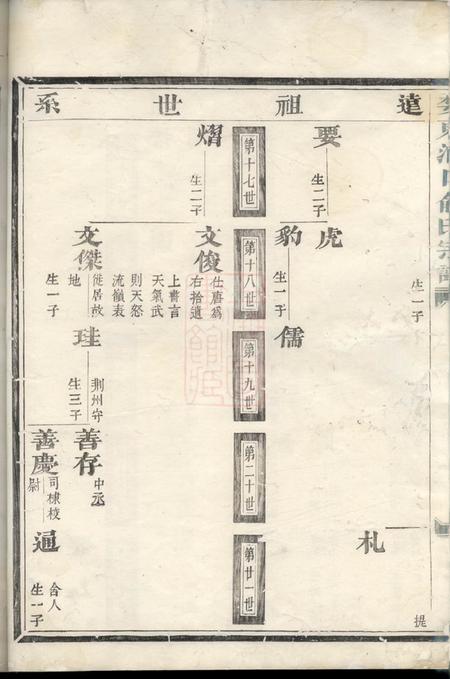 遠祖世系
生一子
要
生二子
虎
豹
生一子
儒
札
提
第十七世
第十八世
第十九世
第二十世
第廿一世
熠
生二子
文俊
仕唐爲
右拾遺
上書言
天氣武
則天怒
流嶺表
文傑
徙居故
地
生一子
珪
荆州守
生三子
善存
中丞
善慶
司棣校
尉
通
合人
生一子